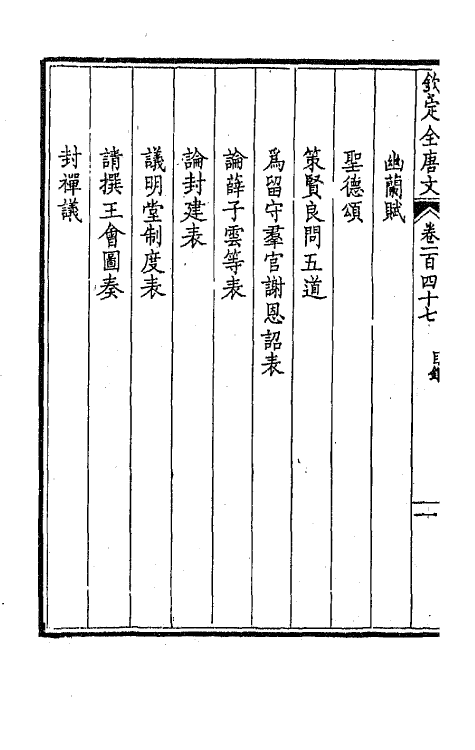 欽定全唐文 卷一百四十七 目錄 一
幽蘭賦
聖德頌
策賢良問五道
爲留守羣官謝恩詔表
論薛子雲等表
論封建表
議明堂制度表
請撰王會圖奏
封禪議